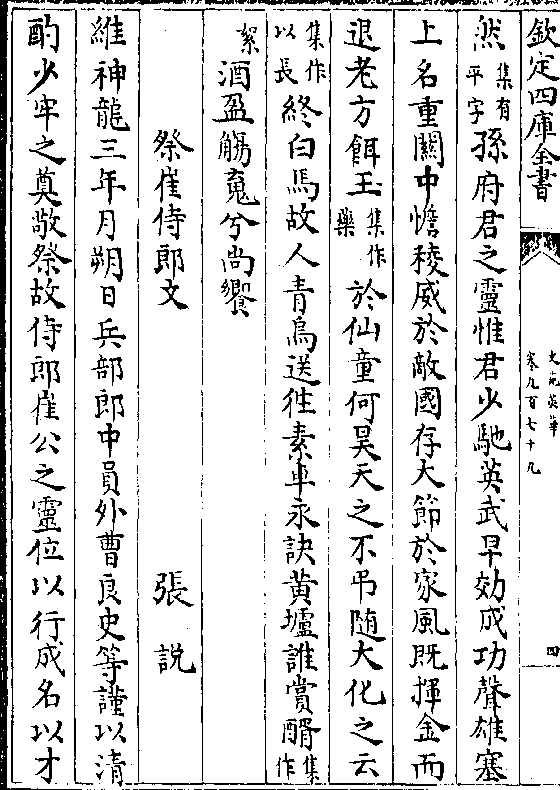 欽定四庫全書
文苑英華
卷九百七十九
四
然集有平字孫府君之靈惟君少馳英武早効成功聲雄塞
上名重關中憺稜威於敵國存大節於家風既揮金而
退老方餌玉集作藥於仙童何昊天之不弔随大化之云
集作以長終白馬故人青烏送徃素車永訣黄壚誰賞醑集作
絮酒盈觴䰟兮尚饗
祭崔侍郎文
張說
維神龍三年月朔日兵部郎中員外曹良史等謹以清
酌少牢之奠敬祭故侍郎崔公之靈位以行成名以才